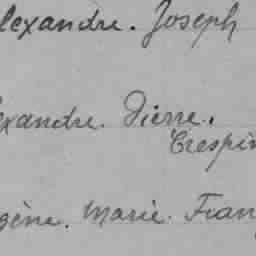 lexandre. Joseph
exandre. Pierre.
Crespin
gène. Marie. Fran